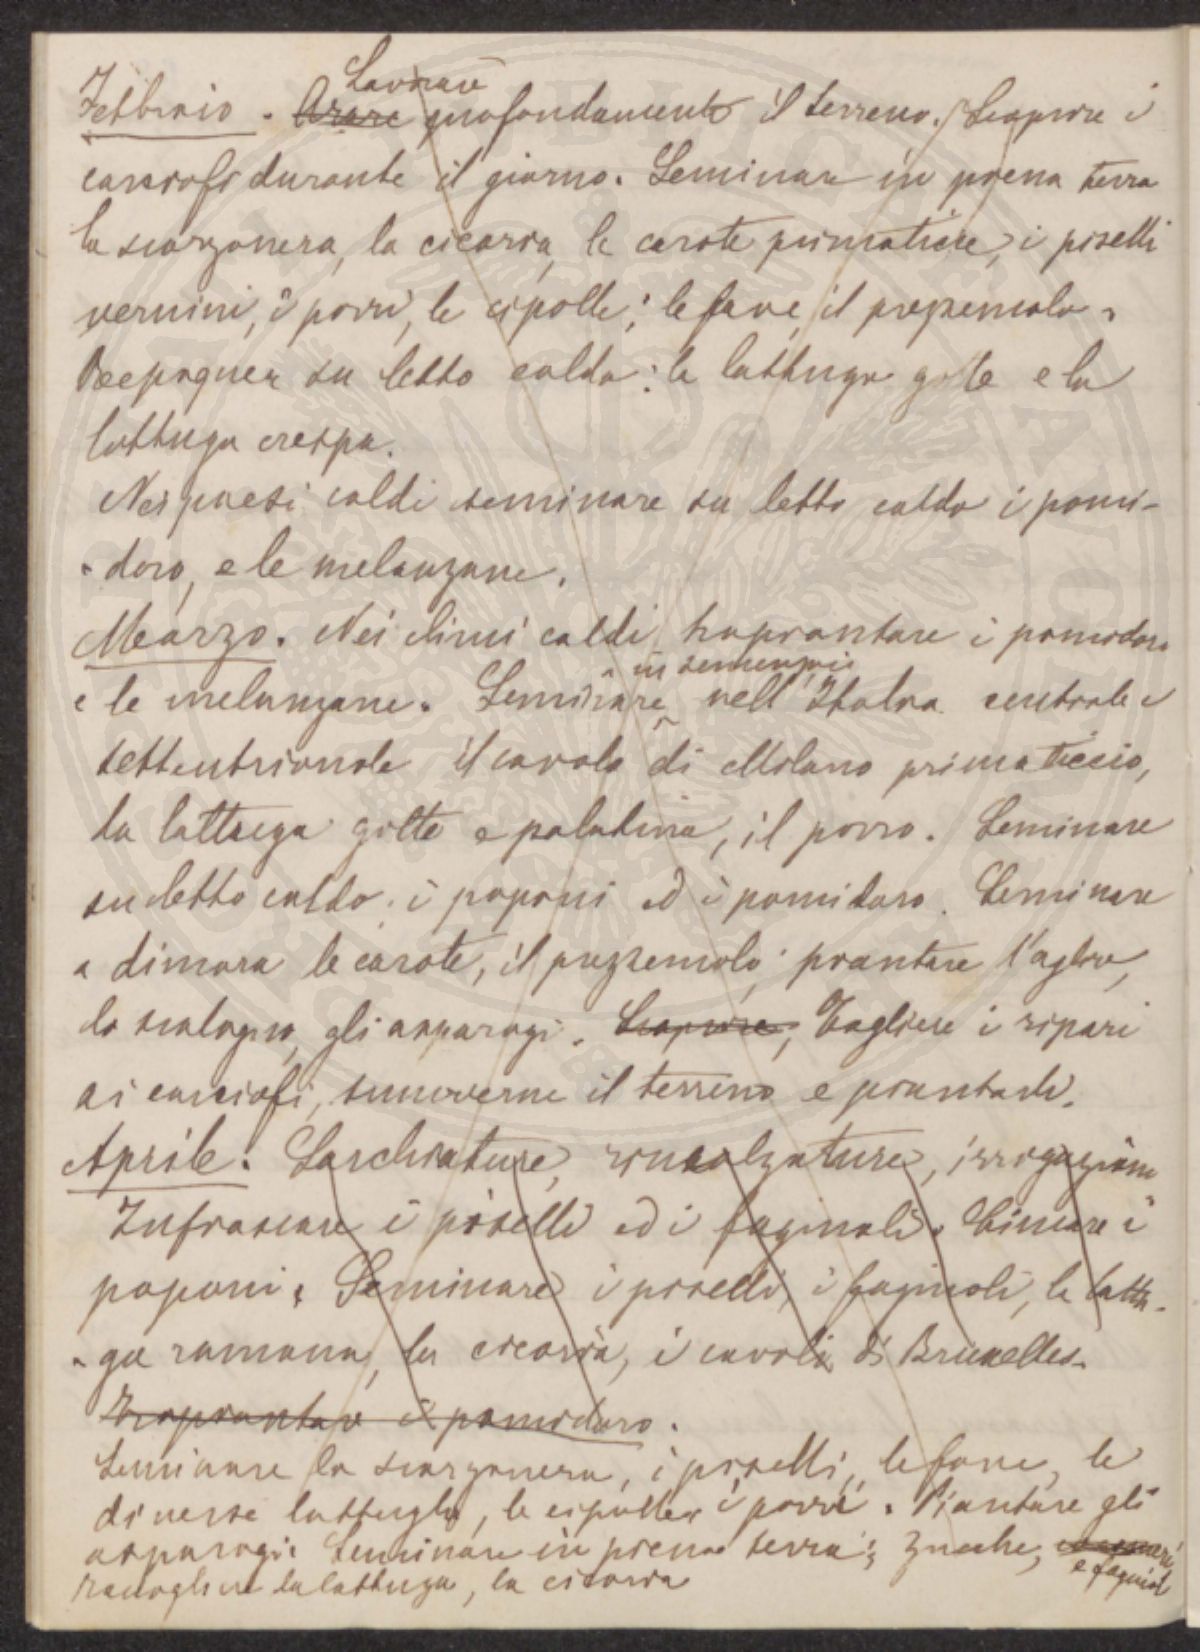 Lavorare
Febbraio. Arare profondamente il terreno. Scoprire i
carciofi durante il giorno. Seminare in piena terra
la scorzonera, la cicoria, le carote primaticcie, i piselli
vernini, i porri, le cipolle; le fave, il prezzemolo.
su letto caldo: la lattuga gotte e la
lattuga crespa.
Nei paesi caldi seminare su letto caldo i pomi-
-doro, e le melanzane.
Marzo. Nei climi caldi trapiantare i pomodoro
in semenzaio
e le melanzane. Seminare nell'Italia centrale e
settentrionale il cavolo di Milano primaticcio,
la lattuga gotte e palatina, il porro. Seminare
su letto caldo: i poponi ed i pomidoro. Seminare
a dimora le carote, il prezzemolo; piantare l'aglio,
lo scalogno, gli asparagi. Scoprire, Togliere i ripari
ai carciofi, smuoverne il terreno e piantarli.
Aprile. Sarchiature, rincalzature, irrigazione
Infrascare i piselli ed i fagiuoli. Cimare i
poponi. Seminare i piselli, i fagiuoli, la lattu-
-ga romana, la cicoria, i cavoli di Bruxelles.
Trapiantare i pomodoro.
Seminare la scorzonera, i piselli, le fave, le
diverse lattughe, le cipolle, i porri. Piantare gli
asparagi. Seminare in piena terra: zucche,
e fagiuoli
raccogliere la lattuga, la cicoria